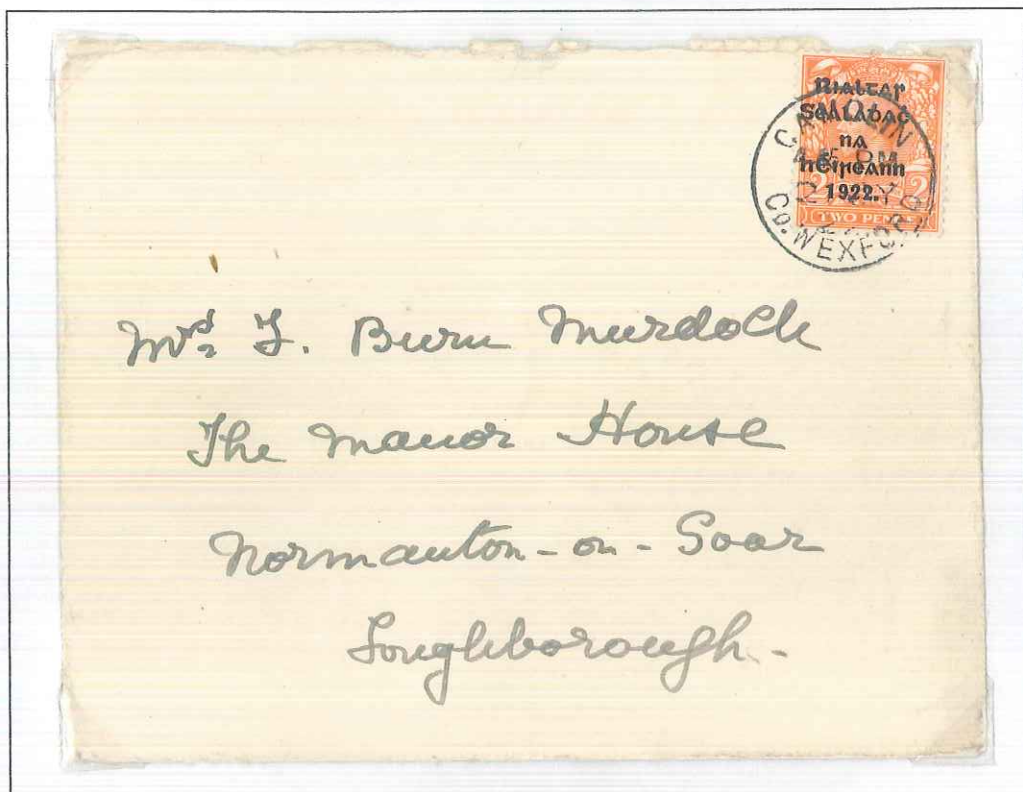 Rialtas
Sealadaċ
na
hÉireann
1922.
TWO PENCE
CAMOLIN
Co. WEXFORD
Mrs F. Burn Murdoch
The Manor House
Normanton-on-Soar
Loughborough-